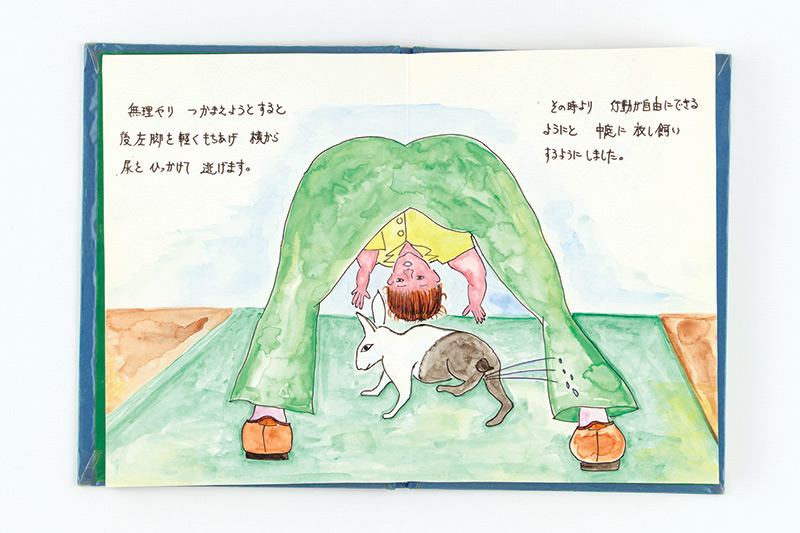 無理やり つかまえようとすると
後左脚を軽くもちあげ 横から
尿を ひっかけて 逃げます。
その時より 行動が自由にできる
ようにと 中庭に 放し飼い
するようにしました。